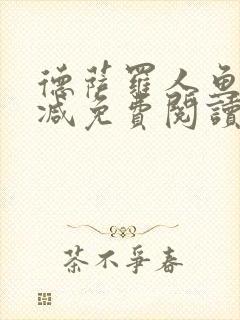 德薩羅人魚
減免費閱讀
茶不爭春